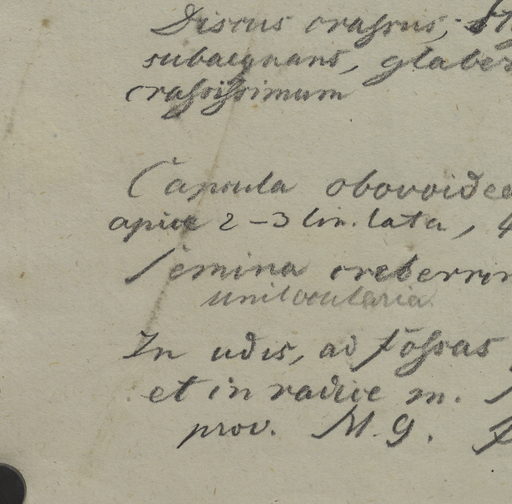 Discus crassus,
subaequans, glaber
crassissimum
Capsula obovoidea
apice 2-3 lin. lata,
Semina creberrim
unilocularia.
In udis, ad fossas
et in radice m.
prov. M. G.